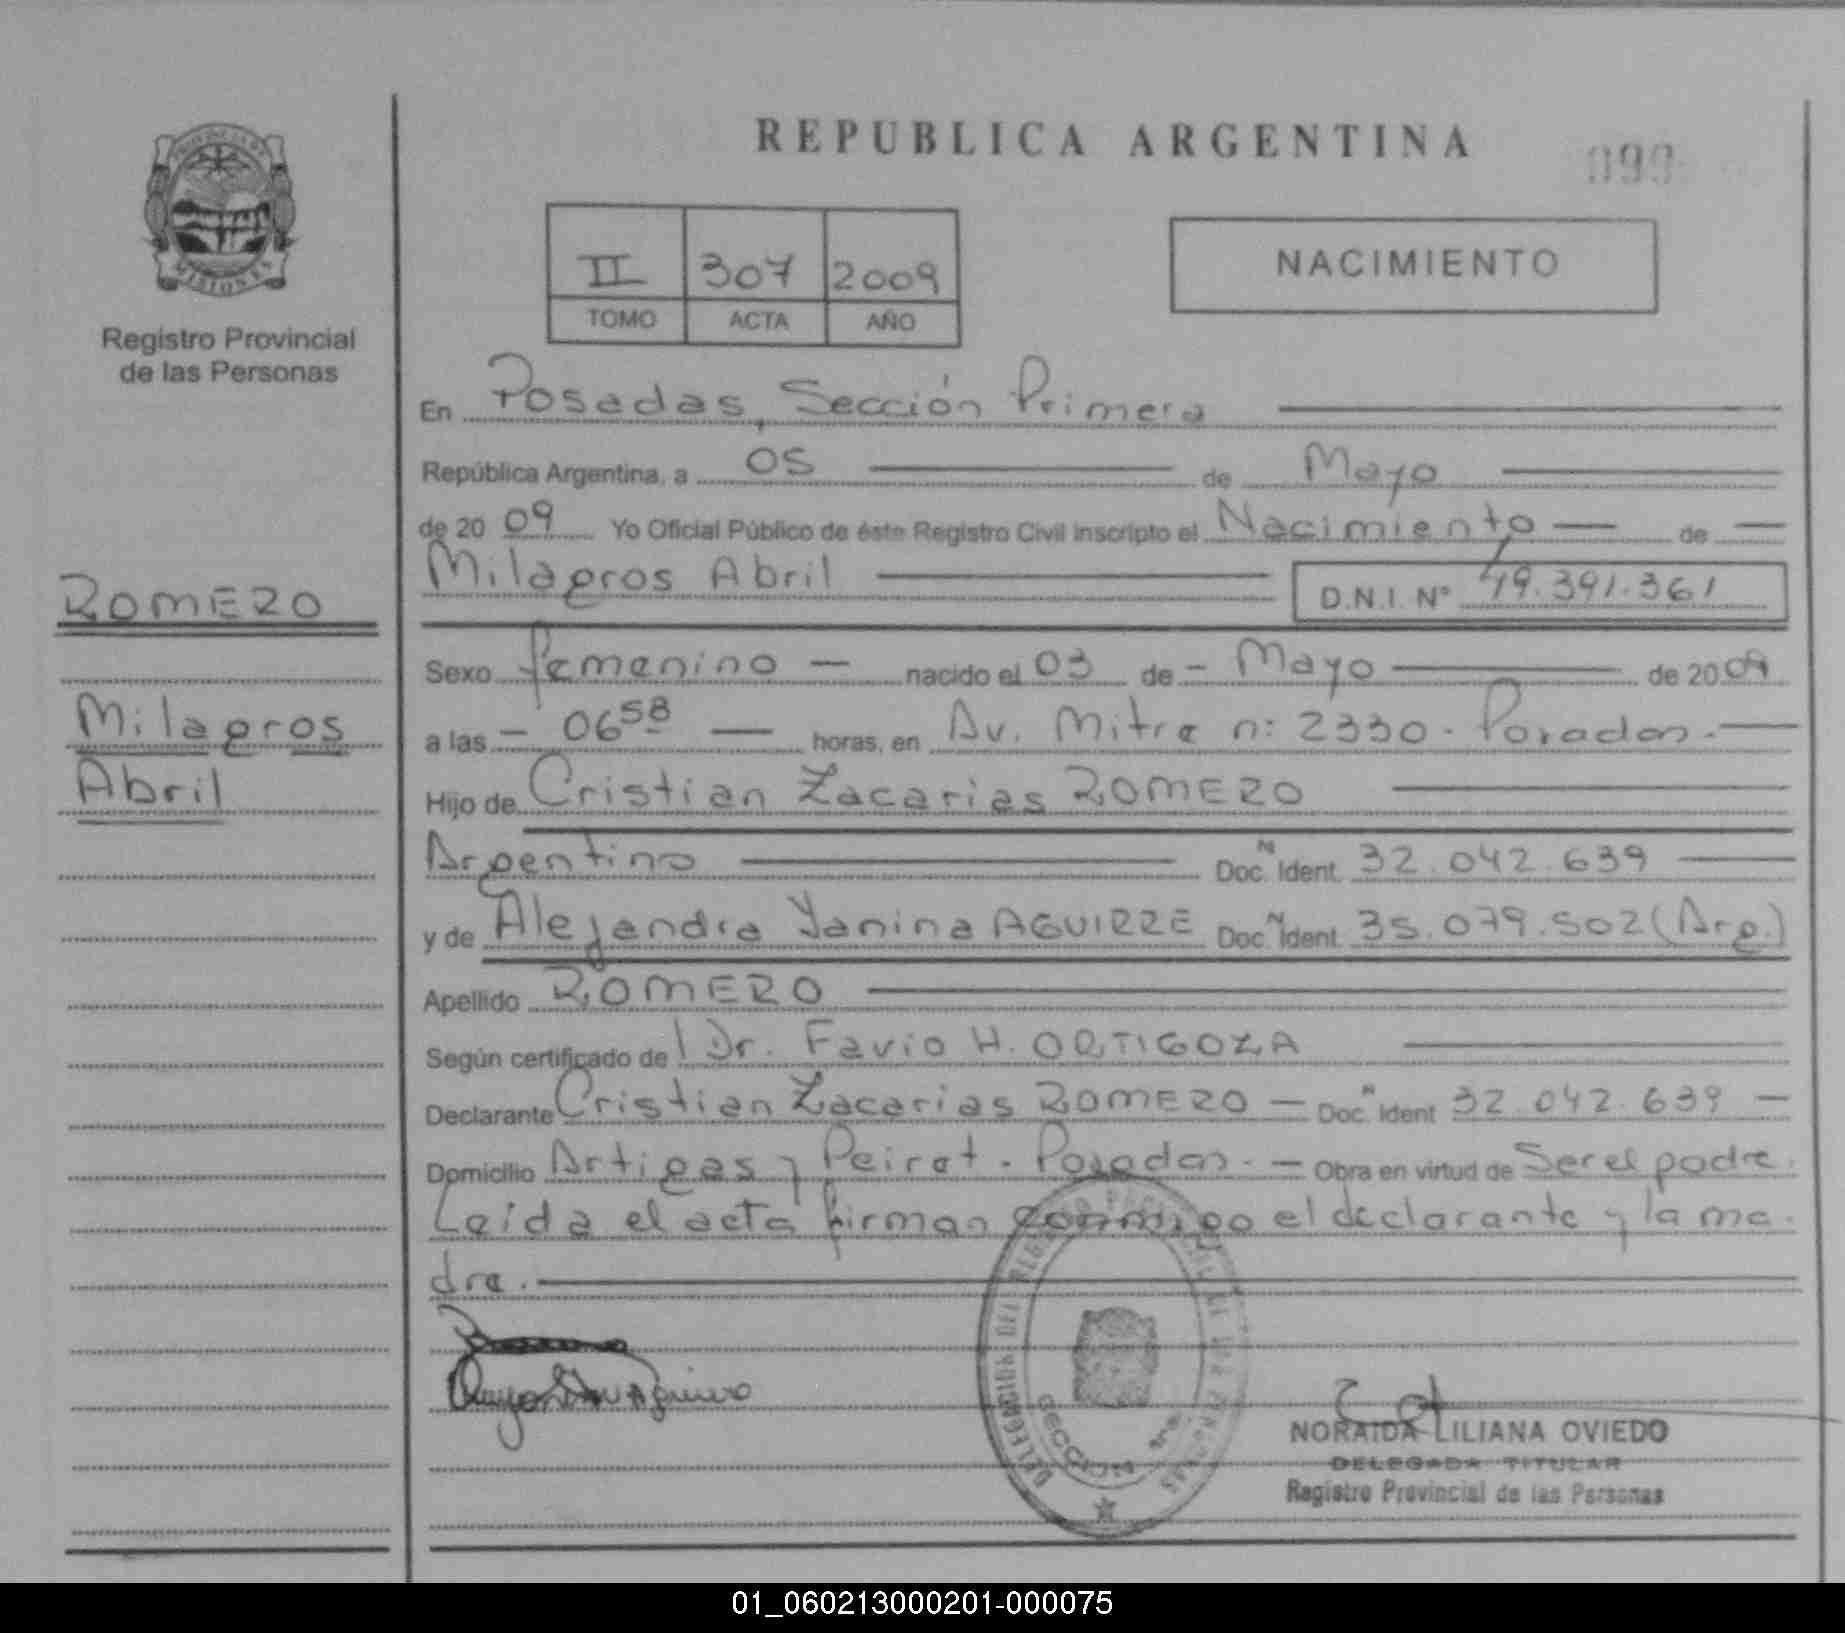 REPUBLICA ARGENTINA
PROVINCIA DE
MISIONES
Registro Provincial
de las Personas
II 307 2009
TOMO ACTA AÑO
NACIMIENTO
En Posadas, Sección Primera
República Argentina, a 05 de Mayo
de 20 09 Yo Oficial Público de éste Registro Civil Inscripto el Nacimiento de
Milagros Abril D.N.I. Nº 49.391.361
ROMERO
Milagros
Abril
Sexo femenino nacido el 03 de Mayo de 20 09
a las 06 58 horas, en Av. Mitre n: 2330. Posadas.
Hijo de Cristian Zacarias ROMERO
Argentino Doc. N Ident. 32.042.639
y de Alejandra Yanina AGUIRRE Doc. N Ident. 35.079.502 (Arg.)
Apellido ROMERO
Según certificado de Dr. Favio H. ORTIGOZA
Declarante Cristian Zacarias ROMERO Doc. N Ident 32.042.639
Domicilio Artigas y Peirat. Posadas. Obra en virtud de Ser el padre.
Leida el acta firman conmigo el declarante y la ma-
dre.
DELEGACION DEL REGISTRO PROVINCIAL DE LAS PERSONAS
SECCION 1ra
NORAIDA LILIANA OVIEDO
DELEGADA TITULAR
Registro Provincial de las Personas
01_060213000201-000075